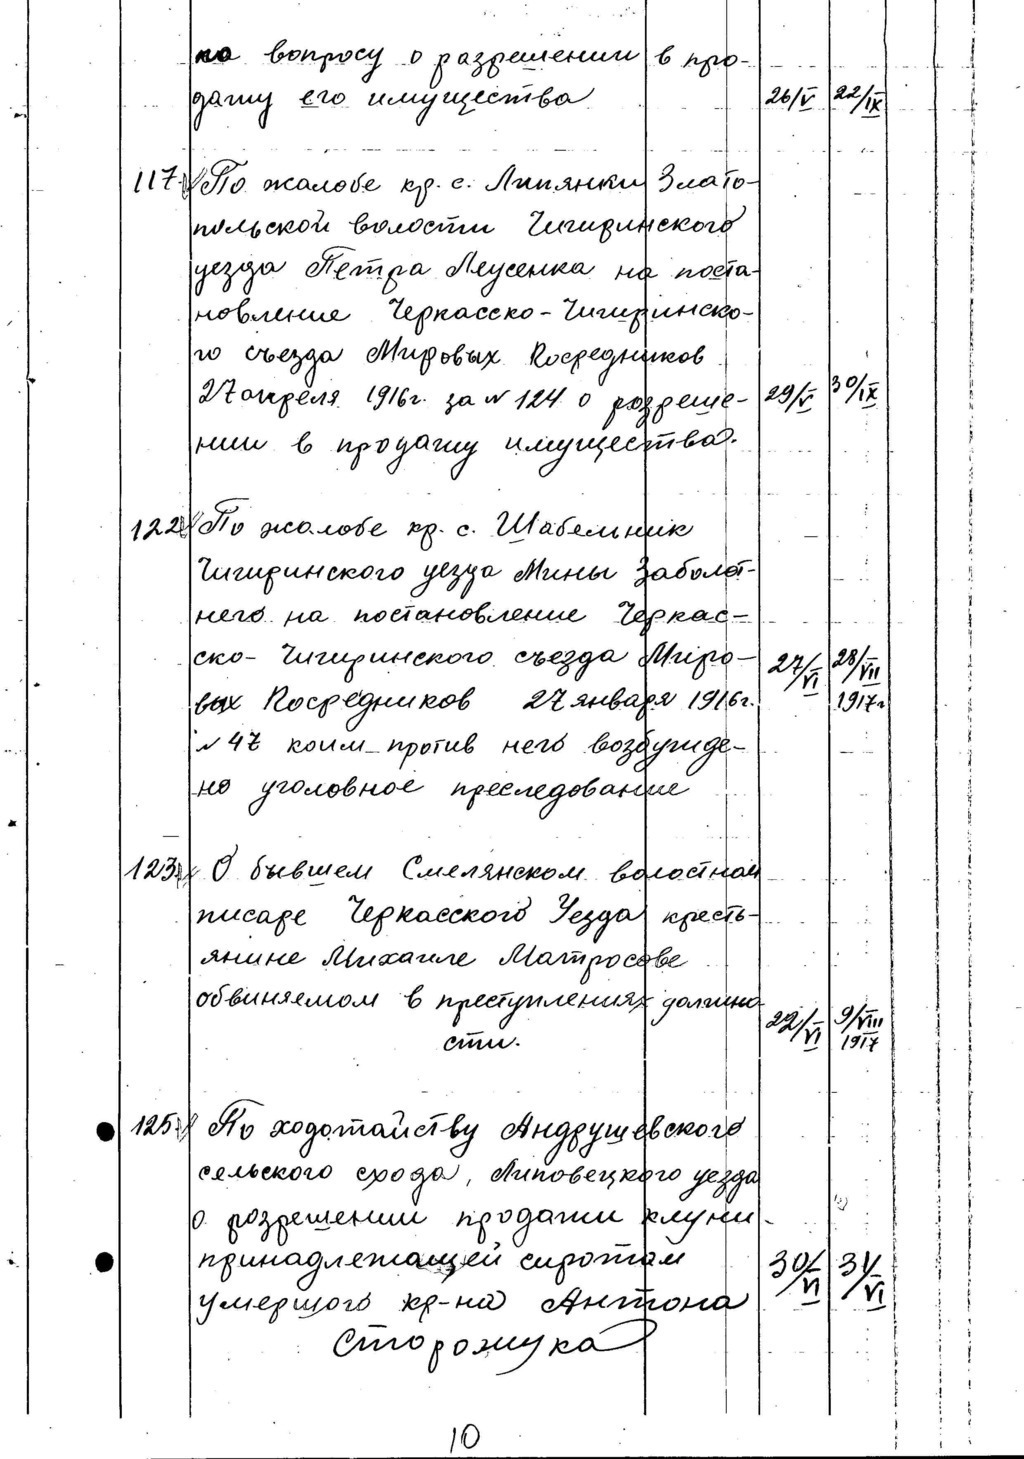 по вопросу о разрешении в про-
дажу его имущества 26/V 22/IX
117 По жалобе кр. с. Липянки Злато-
польской волости Чигиринского
уезда Петра Леусенка на поста-
новление Черкасско-Чигиринско-
го съезда Мировых Посредников
27 апреля 1916г. за № 124 о разреше- 29/V 30/IX
нии в продажу имущества.
122 По жалобе кр. с. Шабельник
Чигиринского уезда Мины Заболот-
него на постановление Черкас-
ско-Чигиринского съезда Миро- 27/VI 28/VII
вых Посредников 27 января 1916г. 1917г
№ 47 коим против него возбужде-
но уголовное преследование
123 О бывшем Смелянском волостном
писаре Черкасского Уезда кресть-
янине Михаиле Матросове
обвиняемом в преступлениях должно- 22/VI 9/VIII
сти. 1917
125 По ходотайству Андрушевского
сельского схода, Липовецкого уезда
о розрешении продажи клуни
принадлежащей сиротам 30/VI 31/VI
умершого кр-на Антона
Сторожука
10